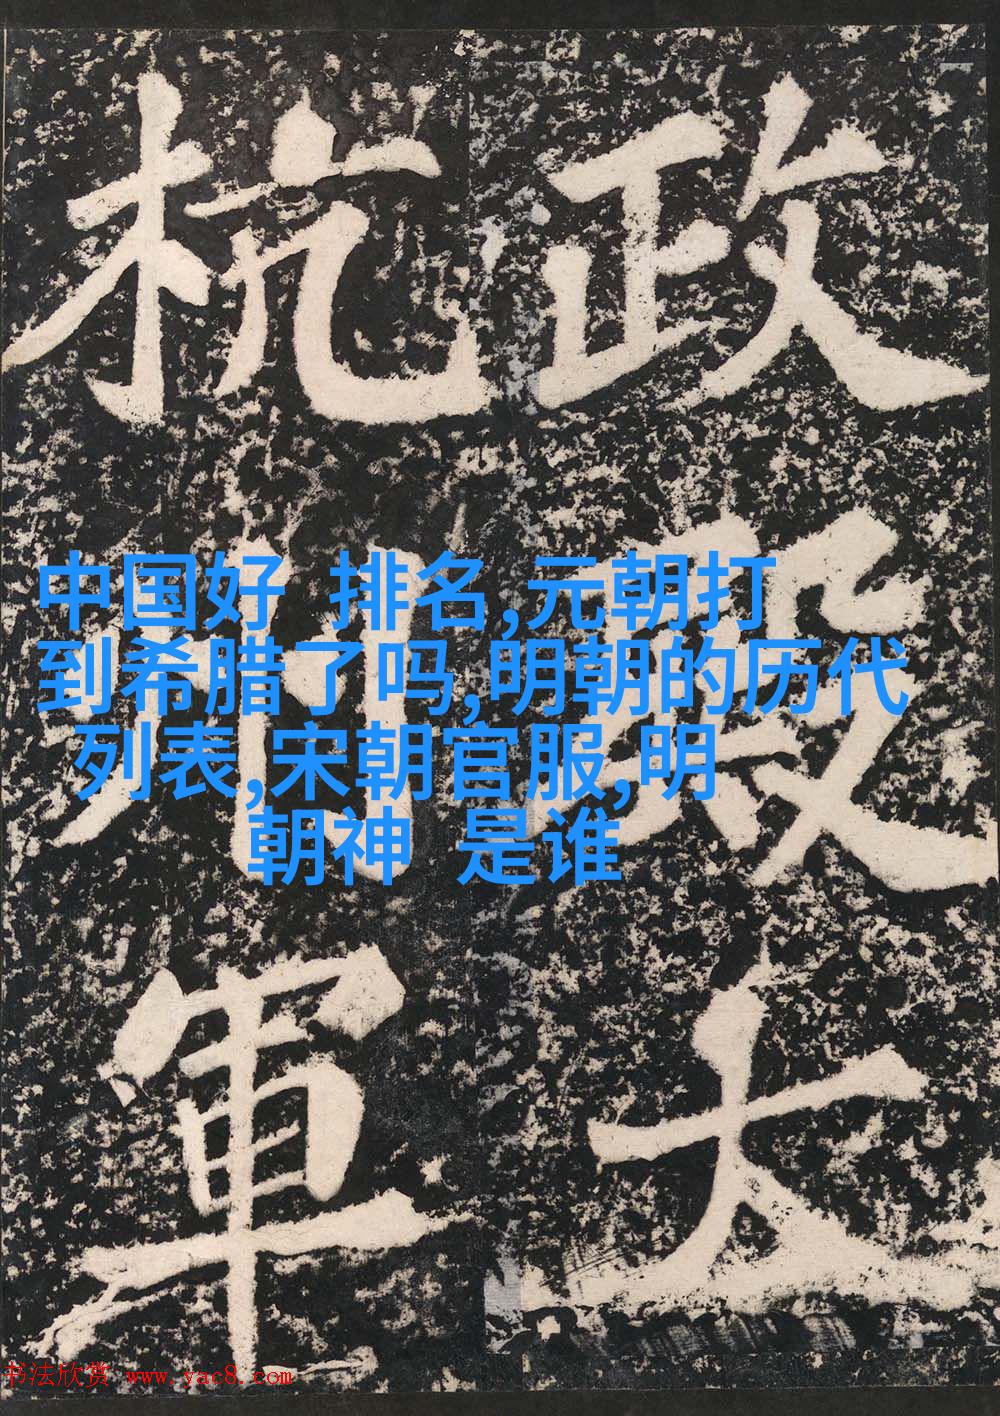 政殿大
杭州軍
中国好 排名,元朝打
到希腊了吗,明朝的历代
列表,宋朝官服,明
朝神 是谁
书法欣赏 www.yac8.com